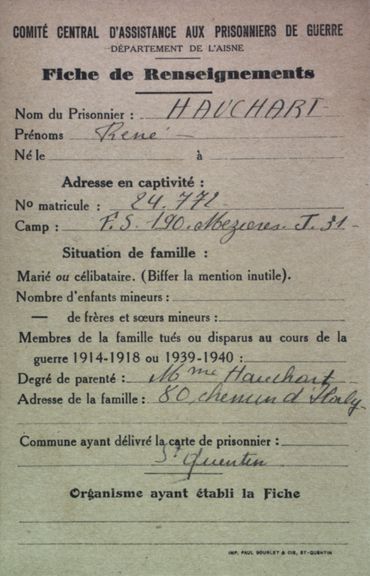 COMITÉ CENTRAL D'ASSISTANCE AUX PRISONNIERS DE GUERRE
DÉPARTEMENT DE L'AISNE
Fiche de Renseignements
Nom du Prisonnier : HAUCHART
Prénoms René
Né le à
Adresse en captivité :
No matricule : 24.772
Camp : F.S. 190. Mezieres. J. 31
Situation de famille :
Marié ou célibataire. (Biffer la mention inutile).
Nombre d'enfants mineurs :
— de frères et sœurs mineurs :
Membres de la famille tués ou disparus au cours de la
guerre 1914-1918 ou 1939-1940 :
Degré de parenté : Mme Hauchart
Adresse de la famille : 80, chemin d'Harly
Commune ayant délivré la carte de prisonnier :
St Quentin
Organisme ayant établi la Fiche
IMP. PAUL BOURLET & CIE, ST-QUENTIN